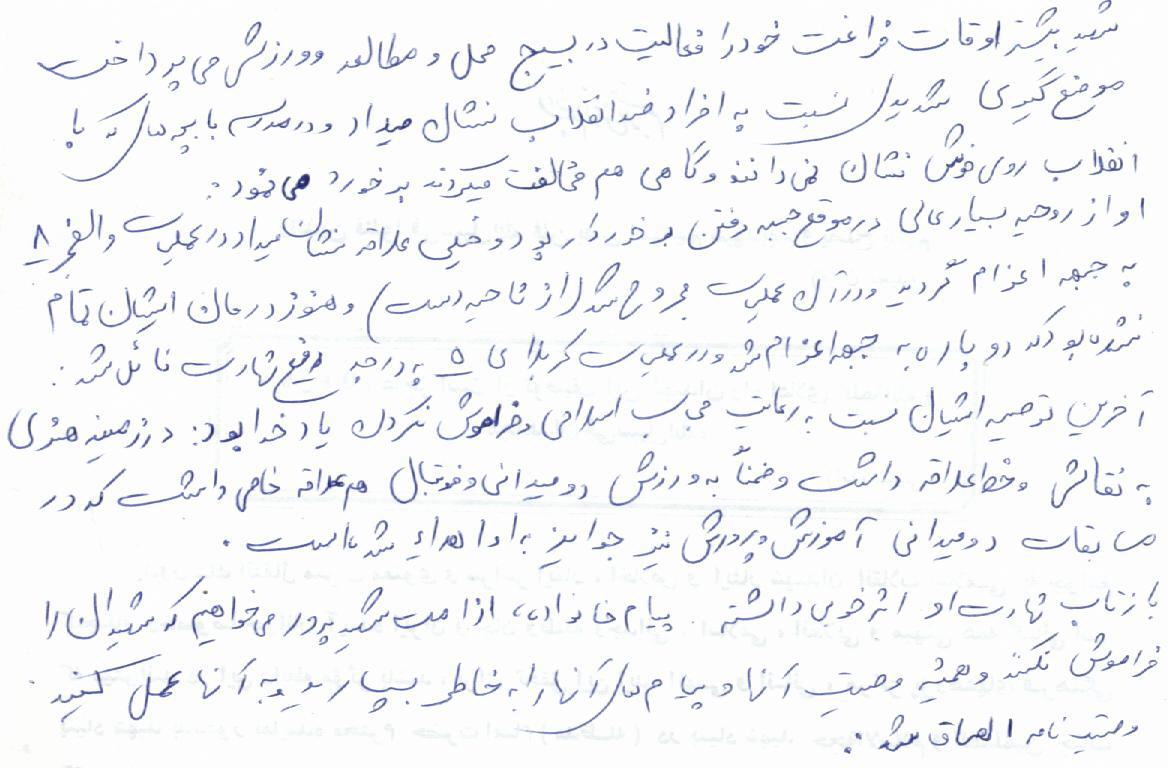 شهید بیشتر اوقات فراغت خود را فعالیت در بسیج محل و مطالعه و ورزش می پرداخت
موضع گیری شدیدی نسبت به افراد ضد انقلاب نشان میداد و در مدرسه با بچه هائی که با
انقلاب روی خوش نشان نمی دادند و گاهی هم مخالفت میکردند برخورد می نمود .
او از روحیه بسیار عالی در موقع جبهه رفتن برخوردار بود و خیلی علاقه نشان میداد در عملیات والفجر ۸
به جبهه اعزام گردید و در آن عملیات مجروح شد (از ناحیه دست) و هنوز درمان ایشان تمام
نشده بود که دوباره به جبهه اعزام شد و در عملیات کربلای ۵ به درجه رفیع شهادت نائل شد .
آخرین توصیه ایشان نسبت به رعایت حجاب اسلامی و فراموش نکردن یاد خدا بود . در زمینه هنری
به نقاشی و خط علاقه داشت و ضمناً به ورزش دومیدانی و فوتبال هم علاقه خاصی داشت که در
مسابقات دومیدانی آموزش و پرورش نیز جوایز به او اهداء شده است .
بازتاب شهادت او اثر خوبی داشته . پیام خانواده ، از امت شهید پرور می خواهیم که شهیدان را
فراموش نکنند و همیشه وصیت آنها و پیام های آنها را به خاطر بسپارید و به آنها عمل کنید .
وصیت نامه الصاق شد .